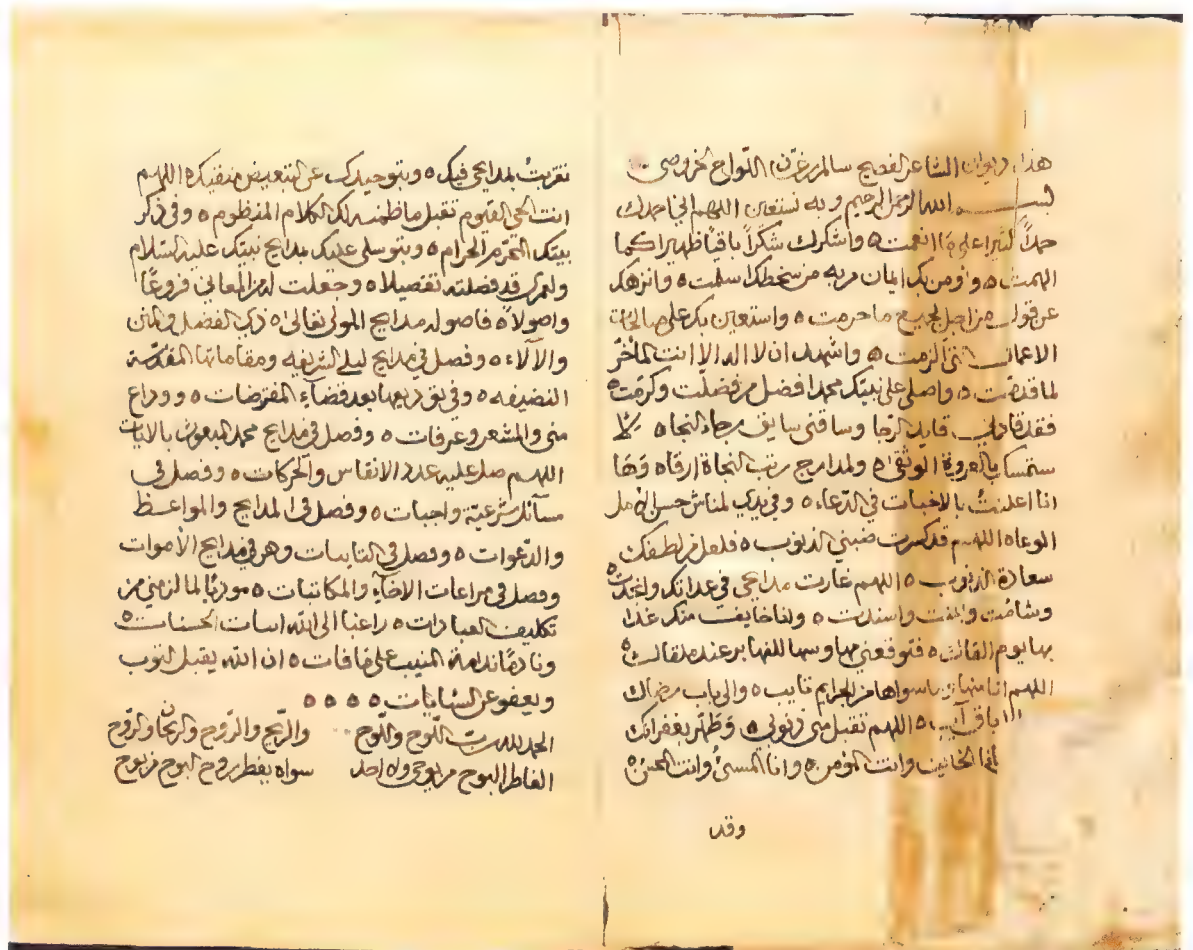 هذا ديوان الشاعر الفصيح سالم بن غسان اللواح الخروصي
بسم الله الرحمن الرحيم وبه نستعين اللهم اني احمدك
حمداً كثيرا على ما انعمت ه واشكرك شكراً باقياً ظهيرا كما
الهمت ه واومن بك ايمان من به من سخطك اسلمت ه وانزهك
عن قولي من اجل جميع ما حرمت ه واستعين بك على صالحات
الاعمال التي الزمت ه واشهد ان لا اله الا انت المأخر
لما قدمت ه واصلى على نبيك محمد افضل من فضلت وكرمت ه
فقد قادني قايد الرجا وساقني سايق رجاء النجاه
ستمسك بالعروة الوثقى ه ولمدارج رتب النجاة ارقاه وها
انا اعلنت بالاخبات في الدعاء ه وفي يدي
الوعاه اللهم قد كسرت الذنوب ه فلعل من لطفك
سعادة الذنوب ه اللهم غارت مدايحي في عداتك وانجدت ه
وشامت وايمنت واسندت ه وانا خايف منك غدا
بها يوم القاك ه فتوقعني بها وسيا للفها بر عند ملقاك ه
اللهم انا منها وما سواها من الجرايم تايب ه والى باب رضاك
ه اللهم تقبل مني ذنوبي ه وطهر بغفرانك
انا الخايف وانت المؤمن ه وانا المسئ وانت المحسن ه
وقد
تقربت بمدايحي فيك ه وبتوحيدك عن التبعيض منفيك ه اللهم
انت الحي القيوم تقبل ما نظمته لك الكلام المنظوم ه وفي ذكر
بيتك المحرم الحرام ه وبتوسلي عليك مدايح نبيك عليه السلام
ولعمرك قد فصلته تفصيلا ه وجعلت له من المعاني فروعًا
واصولاً ه فاصوله مدايح المولى تعالى ه ذي الفضل والمنن
والآلاء ه وفصل في مدايح ليلى الشريفه ومقاماتها المقدسة
النضيفه ه وفي توديعها بعد قضاء المفترضات ه ووداع
منى والمشعر وعرفات ه وفصل في مدايح محمد المبعوث بالايات
اللهم صل عليه عدد الانفاس والحركات ه وفصل في
مسآئل شرعية واجبات ه وفصل في المدايح والمواعظ
والدعوات ه وفصل في التابينات وهو في مدايح الاموات
وفصل في مراعات الاخآء والمكاتبات ه موديًا لما لزمني من
تكليف العبادات ه راغبا الى الله اسات الحسنات ه
ونادمًا ندامة المنيب على ما فات ه ان الله يقبل التوب
ويعفو عن السيايات ه ه ه ه
الحمد لله رب اللوح واللوح والريح والروح والريحان والروح
الفاطر البوح من يوحى ولا احد سواه يفطر بروح البوح من يوح